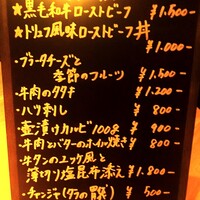 ★黒毛和牛ローストビーフ ¥1.500-
★トリュフ風味ローストビーフ丼
¥1.000-
・ブラータチーズと
季節のフルーツ ¥1.500-
・牛肉のタタキ ¥1.200-
・ハツ刺し ¥800-
・壺漬けカルビ100g ¥900-
・牛肉とバターのホイル焼き ¥800-
・牛タンのユッケ風と
薄切り塩昆布添え ¥1.800-
・チャンジャ(タラの ¥500-